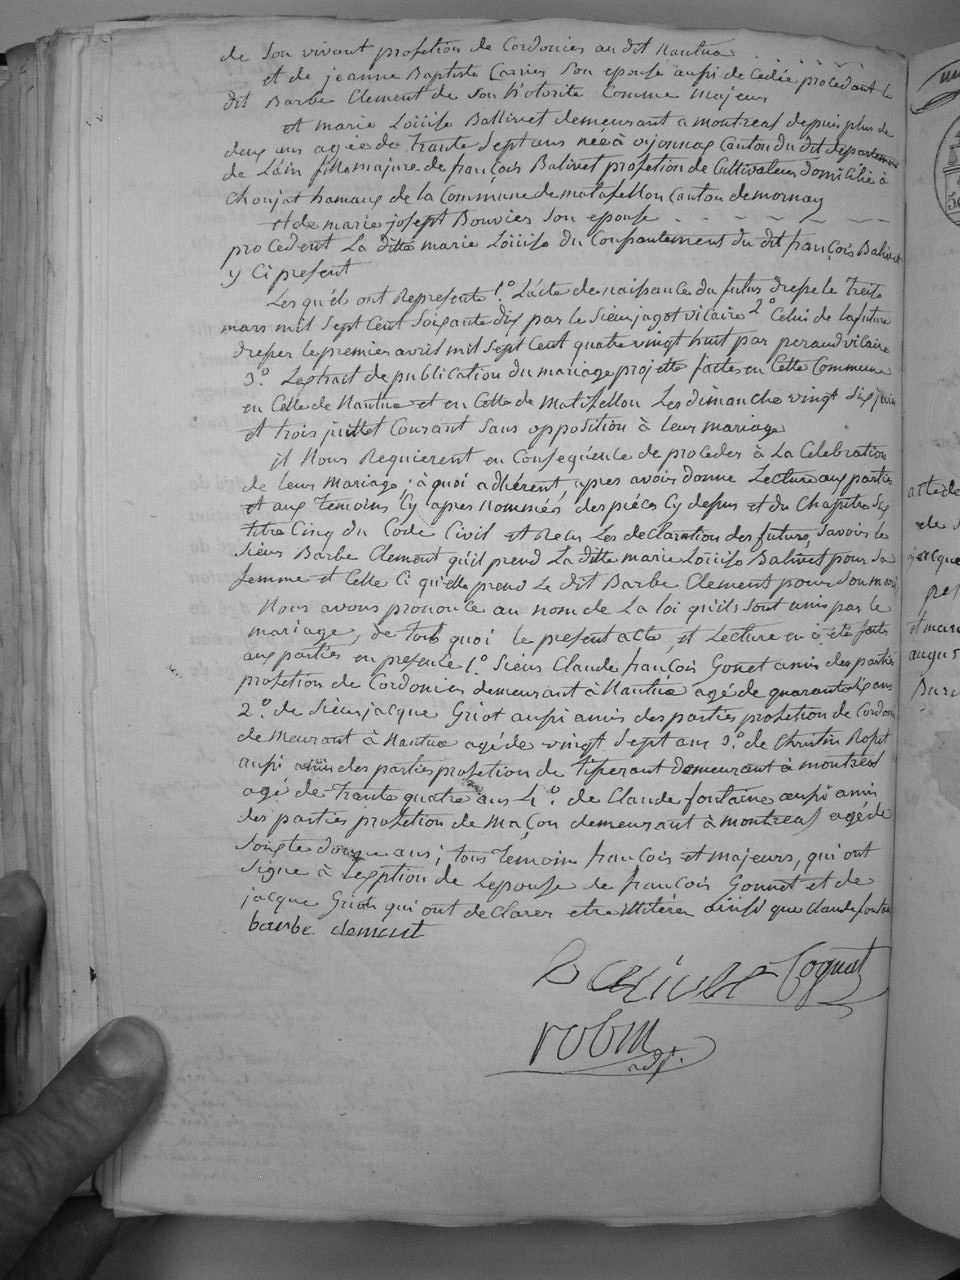 de Son vivant profetion de Cordonier au dit Nantua
et de jeanne Baptiste Carrier Son epouse aussi de cedée procedant le
dit Barbe Clement de Son hotorité Comme Majeur
et marie Loüise Ballivet demeurant a montreal depuis plus de
deux ans agée de Trante Sept ans née à oijonnax Canton du dit departement
de Lain fille majure de françois Balivet profetion de Cultivateur domicilié à
Choujat hamaux de la Commune de matafellon Canton de mornay
et de marie josept Bouvier Son epouse
procedent La ditte marie Loüise du Consantement du dit françois Balivet
y Ci present
Les quels ont Represente 1.° L'acte de naissance du futur dresse le Treite
mars mil Sept Cent Soixante dix par le Sieur jagot vicaire 2° Celui de la future
dresser le premier avril mil Sept Cent quatre vingt huit par peraud vicaire
3.° Lextrait de publication du mariage projetté faites en Cette Commune
en Celle de Nantua et en Celle de Matafellon Les dimanche vingt Six juin
et trois juillet Courant Sans opposition à leur mariage
it Nous Requierent en Consequence de proceder à La Celebration
de leur Mariage ; à quoi adhérent, apres avoir donne Lecture aux parties
et aux Temoins Cy apres Nommés des pièces Cy dessus et du Chapitre Six
titre Cinq du Code Civil et Recu Les declaration des futurs, Savoir le
Sieur Barbe Clement qu'il prend La ditte marie Loüise Balivet pour Sa
femme et Celle Ci qu'elle prend Le dit Barbe Clement pour Son mari
Nous avons prononce au nom de La loi qu'ils Sont unis par le
mariage, de tout quoi le present acte, et Lecture en à été faite
aux parties en presence 1.° Sieur Claude françois Gonet amis des parties
profetion de Cordonier demeurant à Nantua agé de quarante dix ans
2.° de Sieur jacque Griot aussi amis des parties profetion de Cordon
demeurant à Nantua agé de vingt Sept ans 3.° de Christin Rosset
aussi amis des parties profetion de Tisserant demeurant à montreal
agé de Trante quatre ans 4.° de Claude fontaine aussi amis
des parties profetion de Maçon demeurant à montreal agé de
Soixte douze ans ; tous Temoin françois et majeurs, qui ont
Signe à Lexption de Lepouse de françois Gonnet et de
jacque Griot qui ont declarer etre illiterer ainsi que Claude fontaine
barbe clement
robin
adjt.